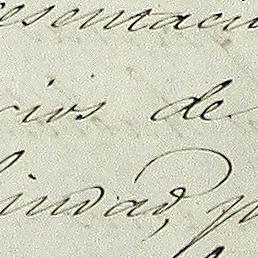 esentaci
cios de
iudad, p